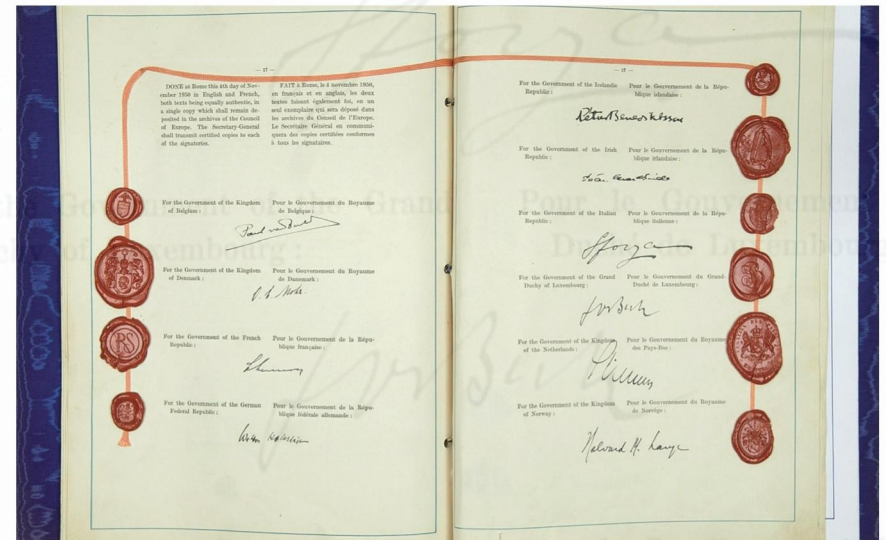 — 17 —
DONE at Rome this 4th day of Nov-
ember 1950 in English and French,
both texts being equally authentic, in
a single copy which shall remain de-
posited in the archives of the Council
of Europe. The Secretary-General
shall transmit certified copies to each
of the signatories.
FAIT à Rome, le 4 novembre 1950,
en français et en anglais, les deux
textes faisant également foi, en un
seul exemplaire qui sera déposé dans
les archives du Conseil de l'Europe.
Le Secrétaire Général en communi-
quera des copies certifiées conformes
à tous les signataires.
For the Government of the Kingdom
of Belgium :
Pour le Gouvernement du Royaume
de Belgique :
For the Government of the Kingdom
of Denmark :
Pour le Gouvernement du Royaume
de Danemark :
For the Government of the French
Republic :
Pour le Gouvernement de la Répu-
blique française :
RS
For the Government of the German
Federal Republic :
Pour le Gouvernement de la Répu-
blique fédérale allemande :
For the Government of the Icelandic
Republic :
Pour le Gouvernement de la Répu-
blique islandaise :
For the Government of the Irish
Republic :
Pour le Gouvernement de la Répu-
blique irlandaise :
For the Government of the Italian
Republic :
Pour le Gouvernement de la Répu-
blique italienne :
Sforza
For the Government of the Grand
Duchy of Luxembourg :
Pour le Gouvernement du Grand-
Duché de Luxembourg :
For the Government of the Kingdom
of the Netherlands :
Pour le Gouvernement du Royaume
des Pays-Bas :
For the Government of the Kingdom
of Norway :
Pour le Gouvernement du Royaume
de Norvège :
Halvard M. Lange